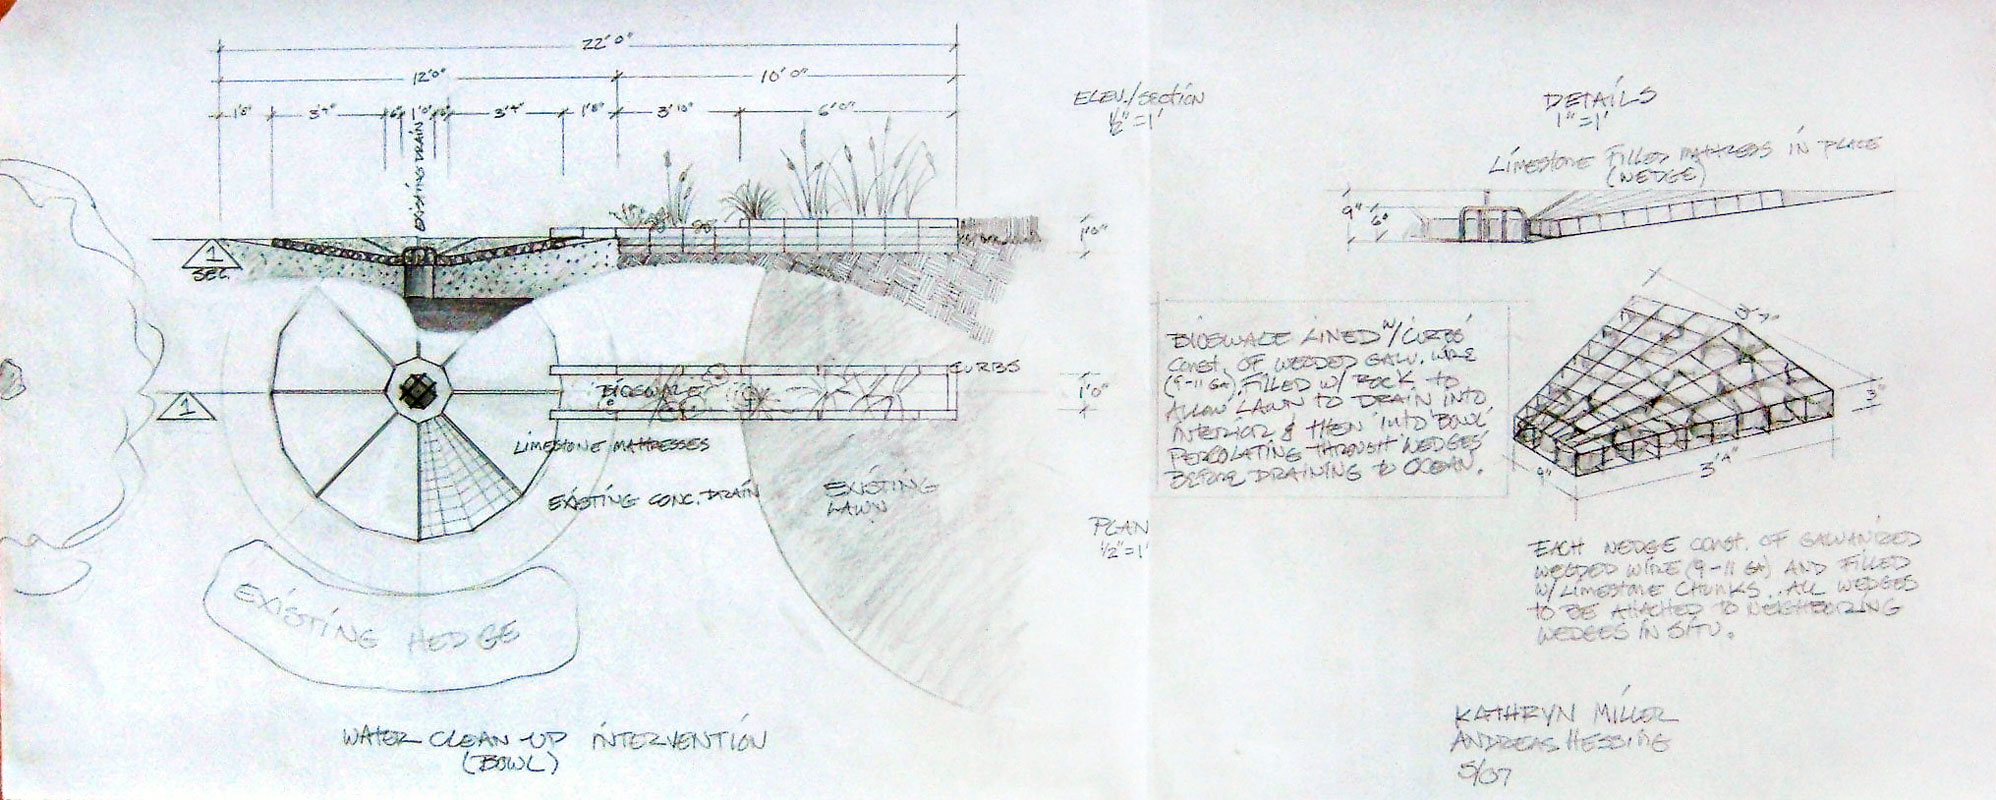 22'0"
12'0"
10'0"
1'8"
3'4"
6"
1'0"
6"
3'4"
1'8"
3'10"
6'0"
EXISTING DRAIN
1'0"
1
SEC.
ELEV./SECTION
1/2"=1'
CURBS
1
BIOSWALE
1'0"
LIMESTONE MATTRESSES
EXISTING CONC. DRAIN
EXISTING
LAWN
PLAN
1/2"=1'
EXISTING HEDGE
WATER CLEAN-UP INTERVENTION
(BOWL)
BIOSWALE LINED W/ 'CURBS'
CONST. OF WELDED GALV. WIRE
(9-11 GA) FILLED W/ ROCK TO
ALLOW LAWN TO DRAIN INTO
INTERIOR & THEN INTO 'BOWL'
PERCOLATING THROUGH 'WEDGES'
BEFORE DRAINING TO OCEAN.
DETAILS
1"=1'
LIMESTONE FILLED MATTRESS IN PLACE
(WEDGE)
9"
6"
3'7"
3"
9"
3'4"
EACH WEDGE CONST. OF GALVANIZED
WELDED WIRE (9-11 GA) AND FILLED
W/ LIMESTONE CHUNKS. ALL WEDGES
TO BE ATTACHED TO NEIGHBORING
WEDGES IN SITU.
KATHRYN MILLER
ANDREAS HESSING
5/07